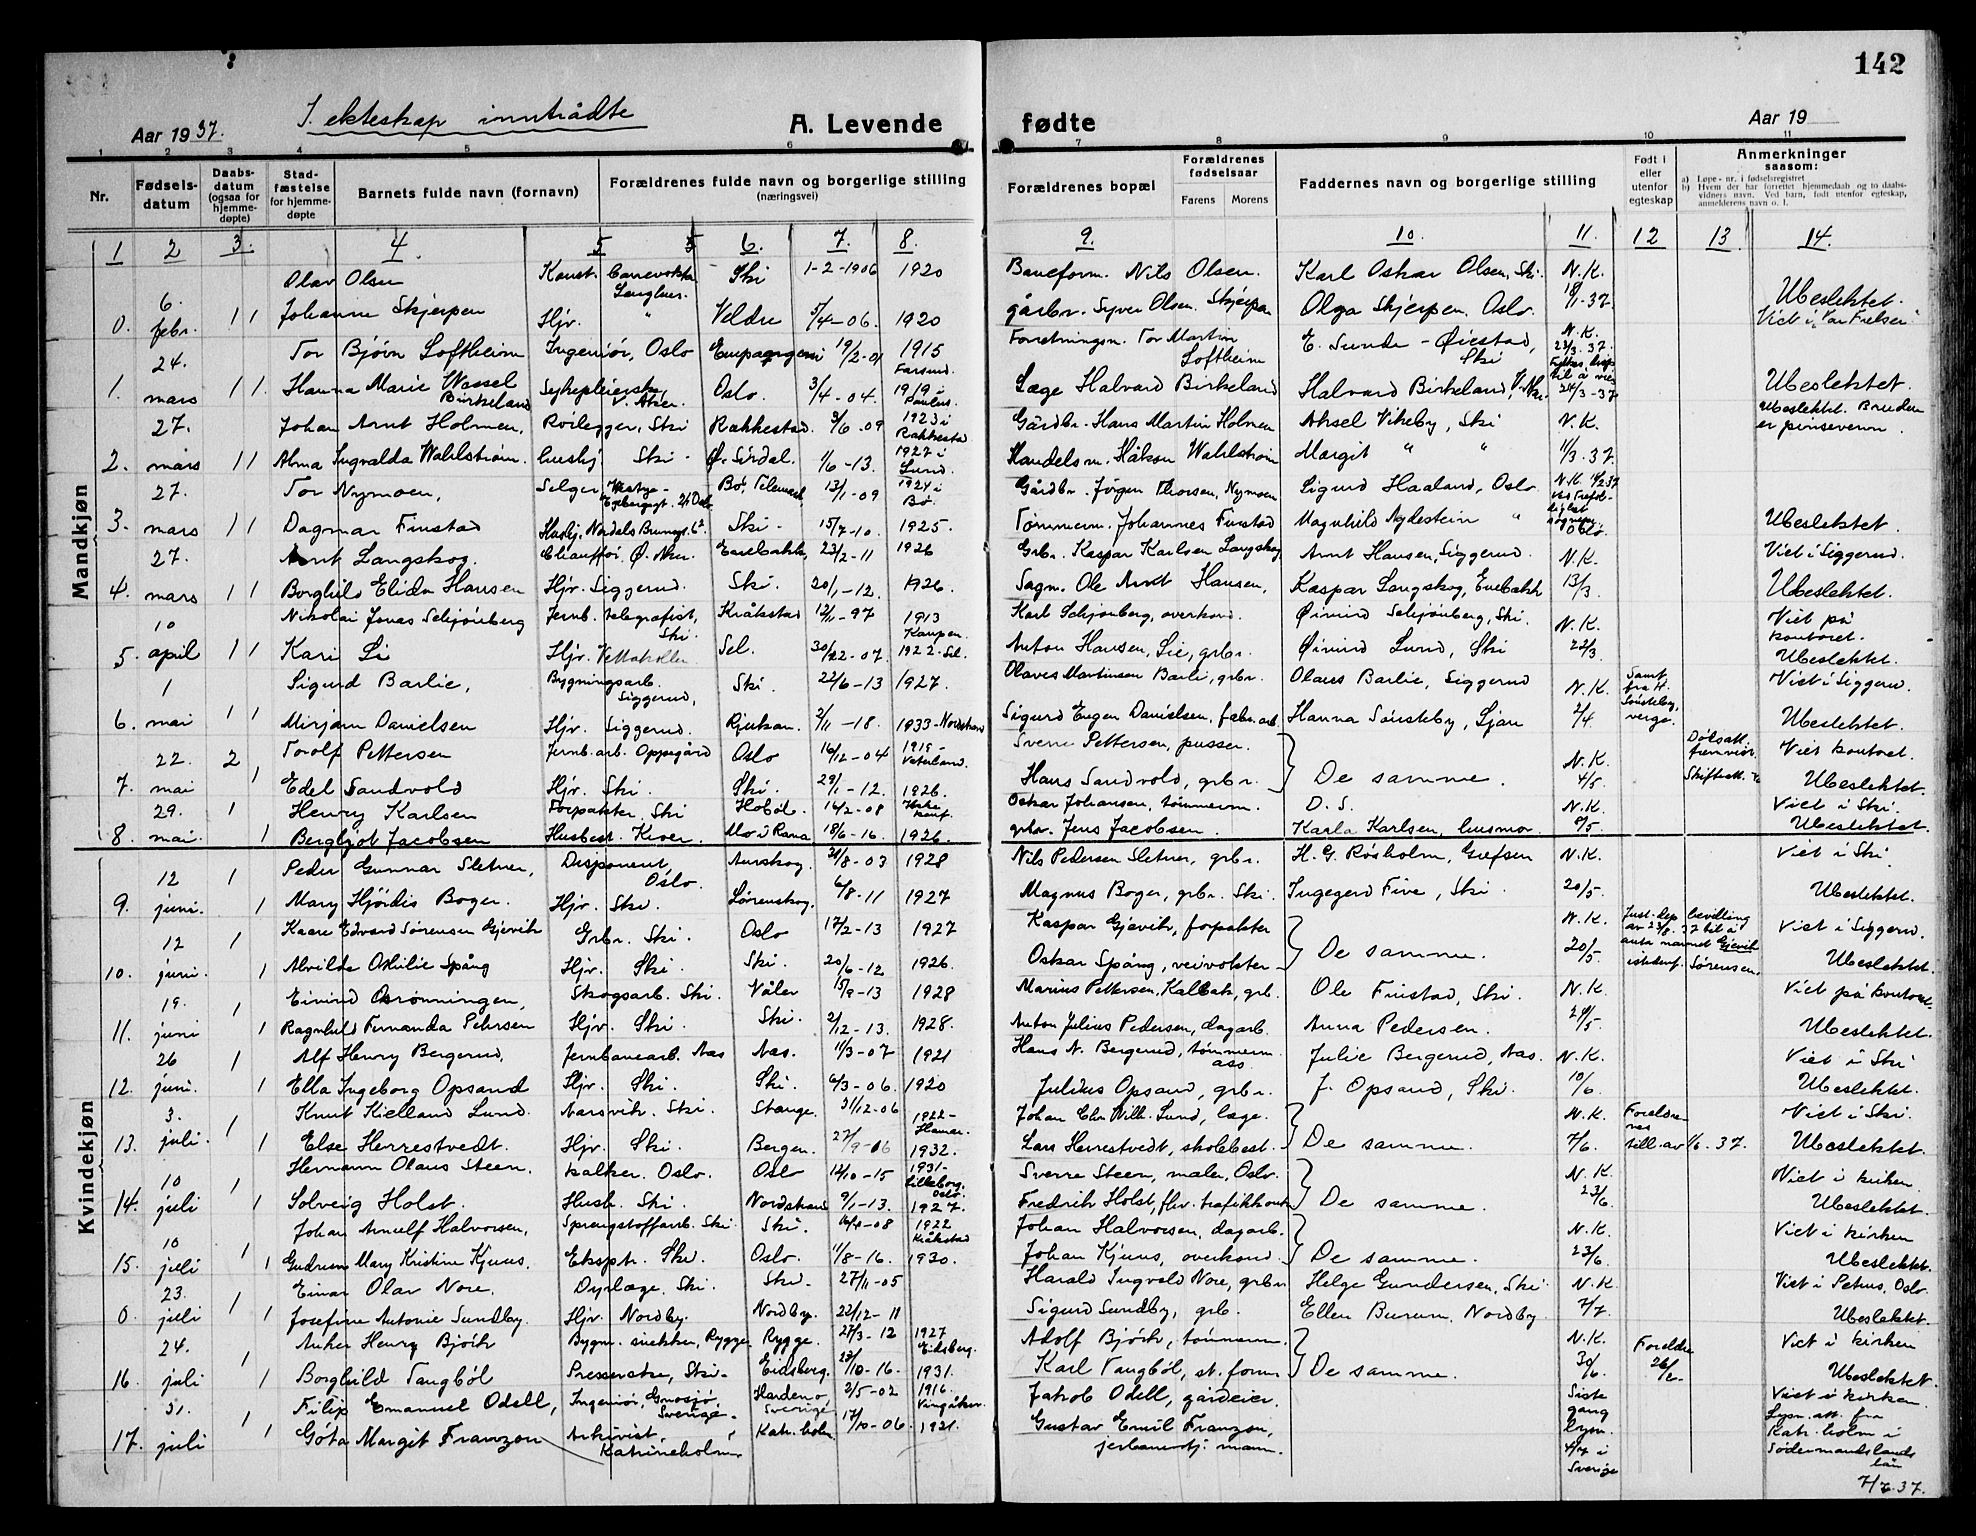 142
Aar 1937.
I. ekteskap inntrådte
A. Levende fødte
Aar 19
1 2 3 4 5 6 7 8 9 10 11
Nr.
Fødsels-datum
Daabs-datum (ogsaa for hjemme-døpte)
Stad-fæstelse for hjemme-døpte
Barnets fulde navn (fornavn)
Forældrenes fulde navn og borgerlige stilling (næringsvei)
Forældrenes bopæl
Forældrenes fødselsaar
Farens Morens
Faddernes navn og borgerlige stilling
Født i eller utenfor egteskap
Anmerkninger saasom:
a) Løpe-nr. i fødselsregistret
b) Hvem der har forrettet hjemmedaab og to daabsvidners navn. Ved barn, født utenfor egteskap, anmelderens navn o. l.
Mandkjøn
Kvindekjøn
1 2 3. 4 5 6. 7. 8. 9. 10. 11. 12 13 14.
6. Olav Olsen Ski 1-2-1906 1920 Baneform. Nils Olsen. Karl Oskar Olsen, Ski. N.K. Ubeslektet.
0. febr. 1 1 Johanne Skjerpen Hjv. " Veldre 5/4-06. 1920 gårbr. Syver Olsen Skjerpen Olga Skjerpen, Oslo. 18/1-37. Viet i "Vår Frelser"
24. Tor Bjørn Loftheim Ingeniør, Oslo 19/2-01 1915 Farsund. Forretningsm. Tor Martin Loftheim E. Sunde - Øiestad, Ski N.K. 23/3.37.
1. mars 1 1. Hanna Marie Wassel Birkeland Sykepleierske, V. Aker. Oslo. 3/4-04. 1919 i Paulus. Læge Halvard Birkeland Halvard Birkeland, V. Aker. 24/3-37 Ubeslektet.
27. Johan Arnt Holmen, Rørlegger, Ski Rakkestad. 3/6-09 1923 i Rakkestad Gårdbr. Hans Martin Holmen Aksel Vikeby, Ski N.K. Ubeslektet. Bruden er pinsevenn.
2. mars 1 1 Alma Ingvalda Wahlstrøm. hushj Ski. Ø. Sirdal. 1/6-13. 1927 i Lund. Handelsm. Håkon Wahlstrøm Margit " " 11/3.37.
27. Tor Nymoen, Selger, Bø, Telemark, 13/1-09 1924 i Bø. Gårdbr. Jørgen Thorsen, Nymoen Sigurd Haaland, Oslo
3. mars 1 1 Dagmar Finstad Ski. 15/7-10. 1925. Tømmerm. Johannes Finstad Magnhild Nydestein " Ubeslektet.
27. Arnt Langskog Chauffør, Ø. Aker. Enebakk, 23/2-11 1926 Grbr. Kaspar Karlsen Langskog Arnt Hansen, Siggerud. N.K. Viet i Siggerud.
4. mars 1 1 Borghild Elida Hansen Hjv. Siggerud. Ski. 20/1-12. 1926. Sagm. Ole Arnt Hansen, Kaspar Langskog, Enebakk 13/3. Ubeslektet.
10 Nikolai Jonas Schjønberg Jernb. telegrafist, Ski. Kråkstad 12/11-97 1913 Karl Schjønberg, overkond. Øivind Schjønberg, Ski. N.K. Viet på kontoret.
5. april 1 1 Kari Li Hjv. Vettakollen Sel. 1922-Sel. Anton Hansen, Lie, grbr. Øivind Lund, Ski 22/3 Ubeslektet.
1 Sigurd Barlie, Bygningsarb. Siggerud, Ski. 22/6-13 1927. Olaves Martinsen Barli, grbr. Olaus Barlie, Siggerud N.K. Samt. fra H. Sønsteby, verge. Viet i Siggerud.
6. mai 1 1 Mirjam Danielsen Hjv. Siggerud. Rjukan. 2/11-18. 1933-Nordstrand Sigurd Eugen Danielsen, fabr. arb. Hanna Sønsteby, Ljan 2/4. Ubeslektet.
22. 2 Torolf Pettersen Jernb. arb. Oppegård Oslo 16/12-04 Sverre Pettersen, pusser. N.K. Dødsatt. fremvist Viet kontoret.
7. mai 1 Edel Sandvold Hjv. Ski. Ski. 29/1-12. 1926. Hans Sandvold, grbr. } De samme. 4/5 Ubeslektet.
29. 1 Henry Karlsen Forpakter, Ski Hobøl. 14/2-08 Ikke konf. Oskar Johansen, tømmerm. D.S. N.K. Viet i Ski.
8. mai. 1 Bergljot Jacobsen Husbest. Kiver. Mo i Rana 18/6-16. 1926. grbr. Jens Jacobsen. Karla Karlsen, husmor. 8/5 Ubeslektet.
12 1 Peder Gunnar Sletner, Disponent, Oslo. Aurskog. 31/8-03 1928 Nils Pedersen Sletner, grbr. H. G. Røsholm, Grefsen N.K. Viet i Ski.
9. juni. 1 Mary Hjördis Boger. Hjv. Ski. Lørenskog. 6/8-11 1927 Magnus Boger, grbr. Ski Ingegerd Five, Ski. 20/5. Ubeslektet.
12 1 Kaare Edvard Sørensen Gjevik Grbr. Ski. Oslo 17/2-13 1927 Kaspar Gjevik, forpakter N.K. Just. dep. bevilling Viet i Siggerud.
10. juni. 1 Alvilde Othilie Spång Hjv. Ski. Ski. 20/6-12 1926. Oskar Spång, veivokter } De samme. 20/5. Sørensen. Ubeslektet.
19. 1 Eivind Osrønningen, Skogsarb. Ski. Våler 15/9-13 1928 Marius Pettersen, Kalbak, grb. Ole Finstad, Ski. N.K. Viet på kontoret.
11. juni 1 Ragnhild Fernanda Pedersen Hjv. Ski. Ski. 2/12-13. 1928. Anton Julius Pedersen, dagarb. Anna Pedersen. 29/5. Ubeslektet.
26 1 Alf Henry Bergerud, Jernbanearb. Aas Aas. 11/3-07 1921 Hans N. Bergerud, tømmerm. ass. Julie Bergerud, Aas. N.K. Viet i Ski
12. juni. 1 Ella Ingeborg Opsand Hjv. Ski. Ski. 6/3-06. 1920 Julius Opsand, grbr. J. Opsand, Ski. 10/6 Ubeslektet.
3. 1 Knut Kielland Lund. Ski. Stange. 31/12-06 1922-Hamar. Johan Chr. Wilh. Lund, læge. N.K. Viet i Ski.
13. juli. 1 Else Herrestvedt. Hjv. Ski. Bergen. 27/9-06 1932. Lars Herrestvedt, skolebest. } De samme. 7/6. till. av 1/6-37. Ubeslektet.
10 1 Hermann Olaus Steen, kalker. Oslo. Oslo 14/10-15 1931-Lilleborg, Oslo. Sverre Steen, maler, Oslo. N.K. Viet i kirken.
14. juli 1 Solveig Holst. Hush. Ski. Nordstrand 9/1-13. 1927. Fredrik Holst, } De samme. 23/6. Ubeslektet.
10 1 Johan Arnulf Halvorsen, Sprengstoffarb. Ski. Ski. 16/4-08 1922 Kråkstad Johan Halvorsen, dagarb. N.K. Viet i kirken
15. juli 1 Gudrun Mary Kristine Kjuus, Eksptr. Ski. Oslo. 11/8-16. 1930. Johan Kjuus, overkond. } De samme. 23/6. Ubeslektet.
23. 1 Einar Olav Nore. Dyrlæge. Ski. Ski. 27/11-05 Harald Ingvald Nore, grbr. Helge Gundersen, Ski N.K. Viet i Petrus, Oslo.
0. juli 1 Josefine Antonie Sundby. Hjv. Nordby. Nordby. 22/12-11 Sigurd Sundby, grb. Ellen Burum, Nordby. 7/7. Ubeslektet.
24. 1 Anker Henry Bjørk Bygn. snekker, Rygge Rygge. 27/3-12 1927 Eidsberg. Adolf Bjørk, tømmerm. N.K. Foreldre Viet i kirken
16. juli 1 Borghild Tangbøl Ski. Eidsberg. 23/10-16. 1931. Karl Tangbøl, st. form. } De samme. 30/6. Ubeslektet.
31. Filip Emanuel Odell, Ingeniør, Gnosjö, Sverige. Sverige 2/5-02 1916. Vingåker. Jakob Odell, gårdeier. Siste gang lysn. 4/7 i Sverige Viet i kirken.
17. juli 1 Göta Margit Franzon Arkivist, Katrineholm Katr. holm 17/10-06 1921. Gustav Emil Franzon, Lysn. att. fra Katr. holm i Södermanslands län 7/7.37.